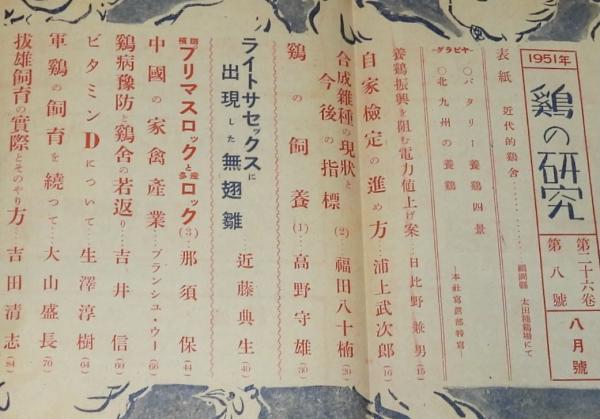 1951年
鶏の研究
第二十六卷
第八號
八月號
表紙 近代的鶏舍………福岡縣 太田種鶏場にて
グラビヤ
○バタリー養鶏四景
○北九州の養鶏………本社寫眞部特寫
養鶏振興を阻む電力値上げ案…日比野兼男(15)
自家檢定の進め方…浦上武次郎(16)
合成雜種の現狀と今後の指標(2)…福田八十楠(20)
鶏の飼養(1)…高野守雄(30)
ライトサセックスに出現した無翅雛…近藤典生(40)
横斑プリマスロックと多産ロック(3)…那須保(44)
中國の家禽產業…ブランシュ・ウー(66)
鷄病豫防と鷄舍の若返り…吉井信(60)
ビタミンDについて…生澤淳樹(64)
軍鷄の飼育を繞って…大山盛長(70)
拔雄飼育の實際とそのやり方…吉田清志(84)